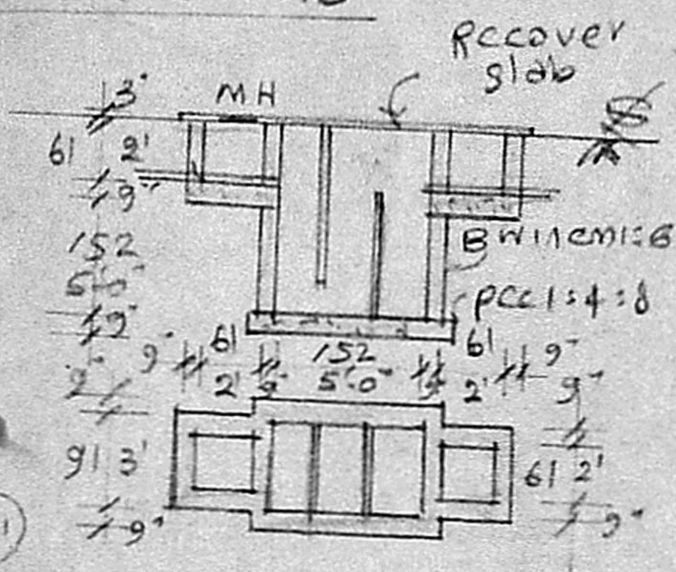 RCC cover
slab
3"
MH
61 2'
9"
152
5'-0"
9"
BW in CM 1:6
PCC 1:4:8
9" 61 152 61 9"
2' 9" 5'-0" 9" 2'
9"
9"
91 3'
61 2'
9"
9"